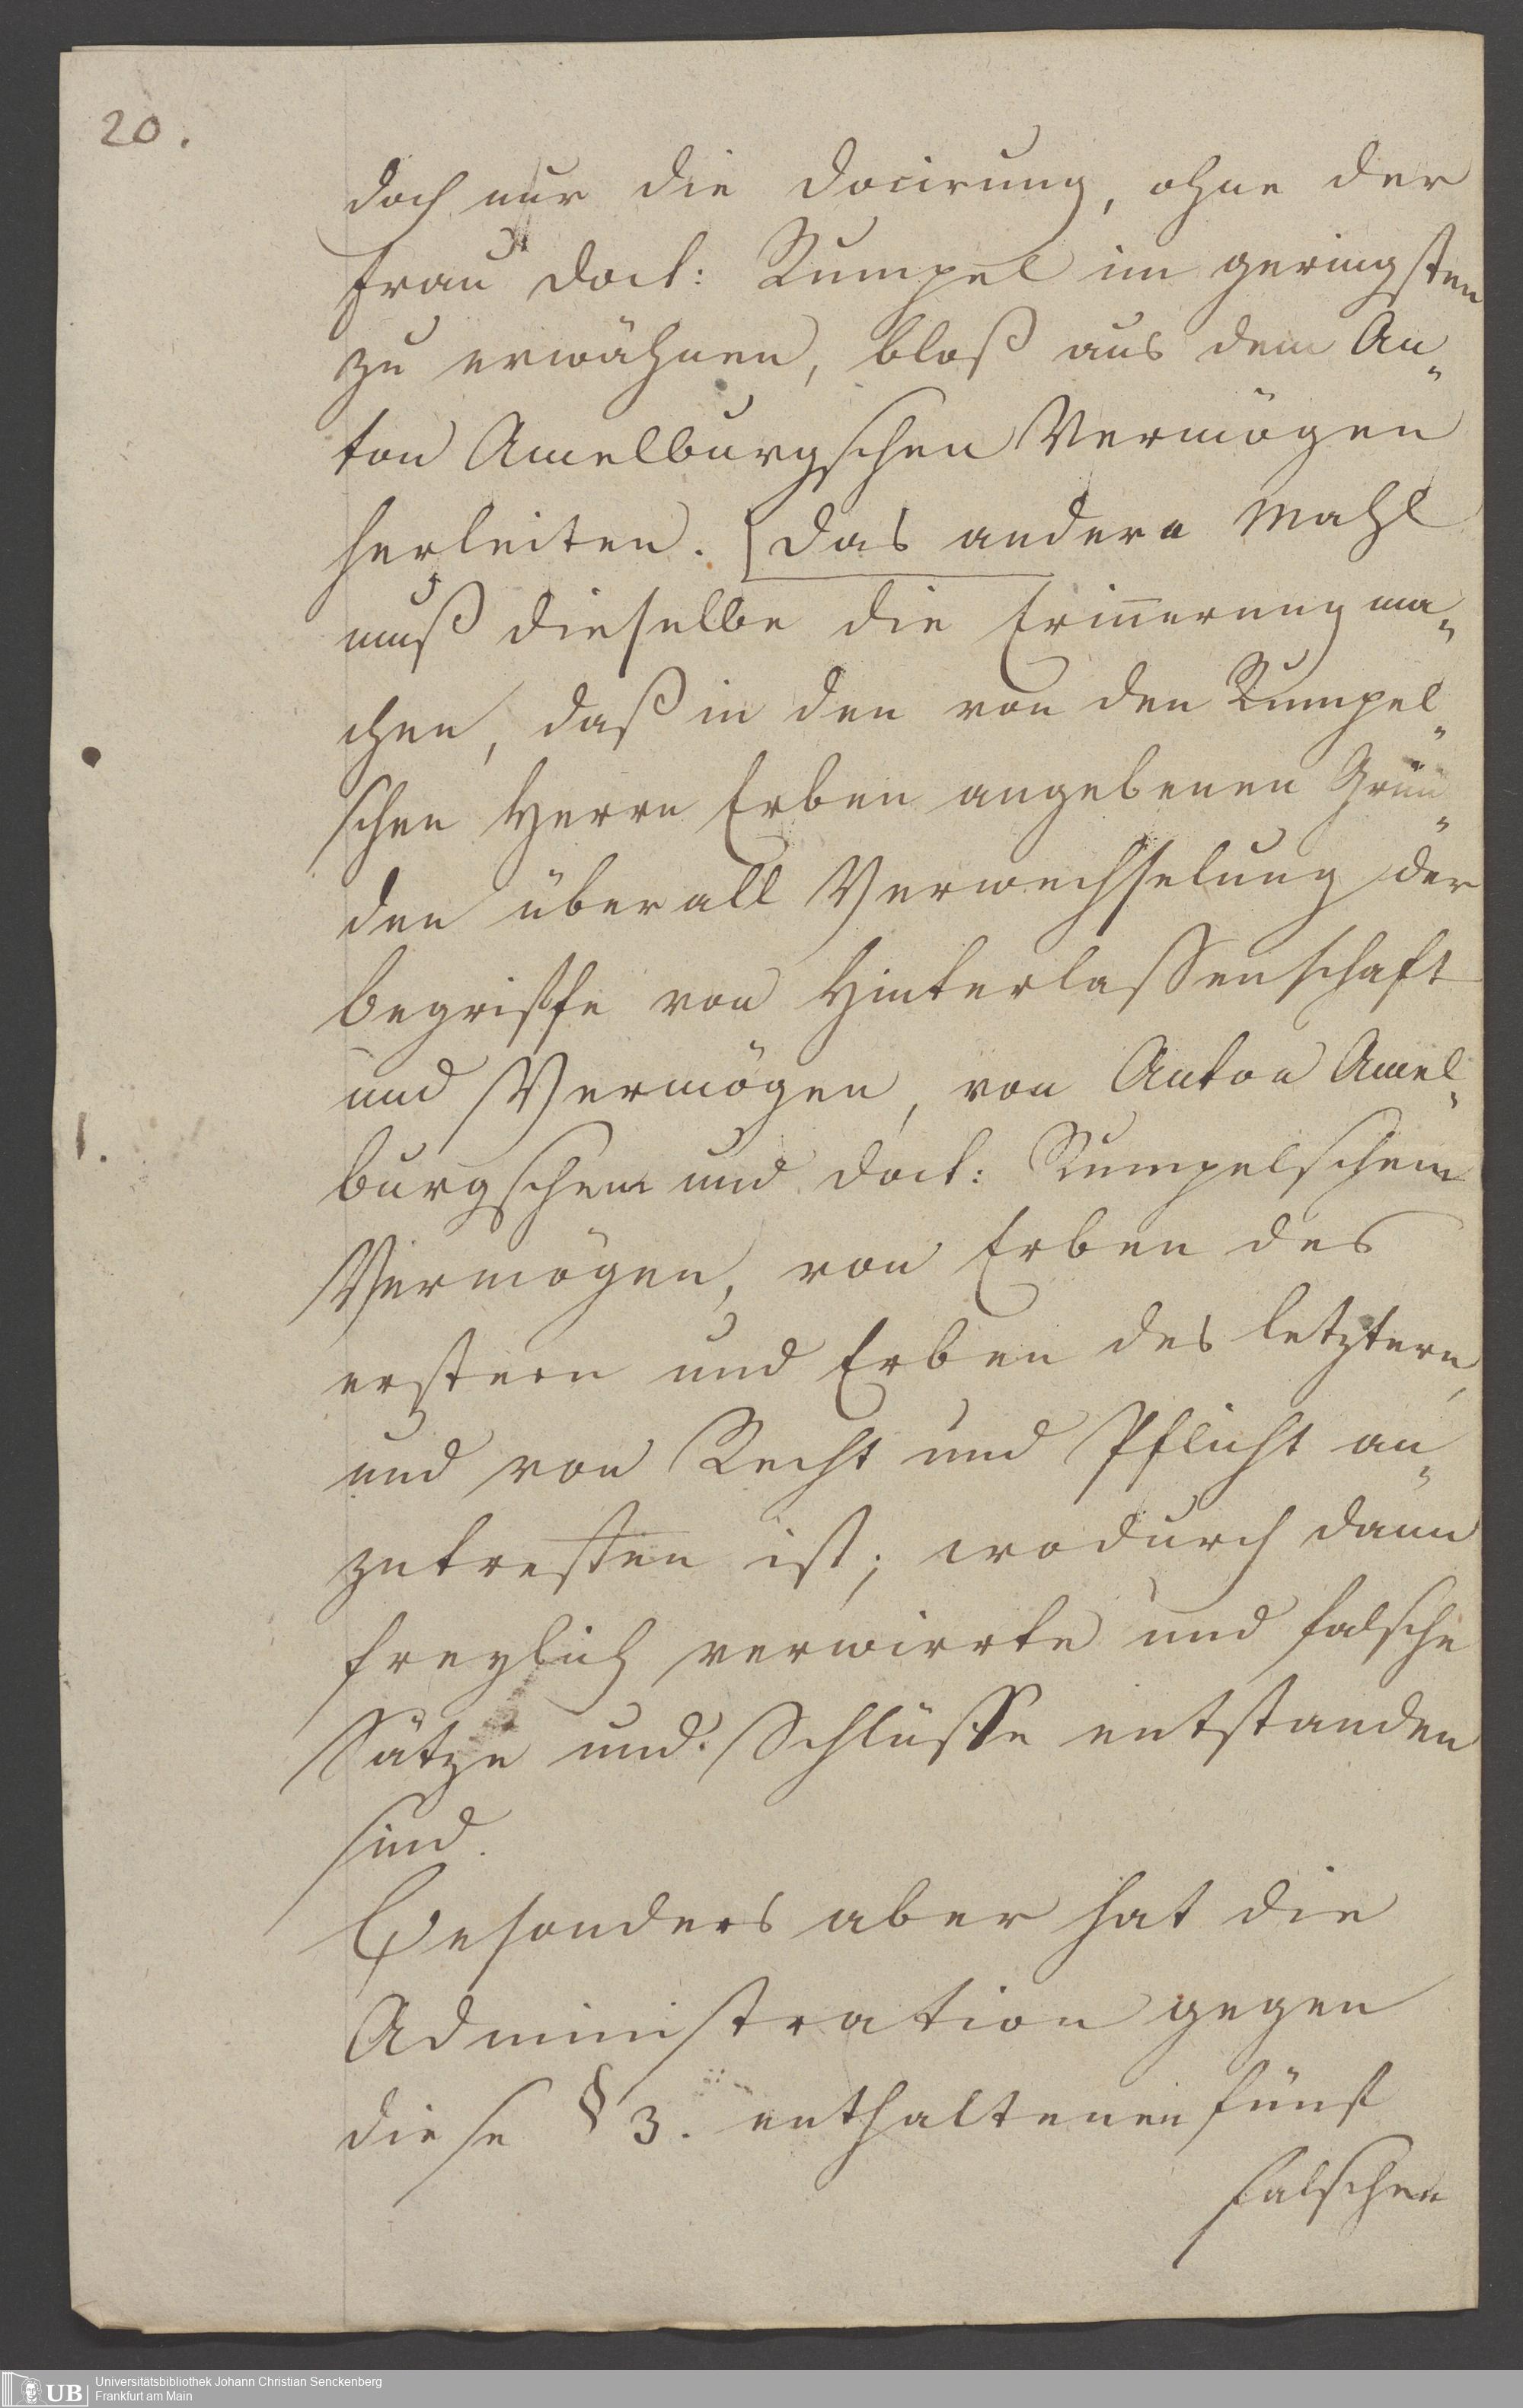 20.
doch nur die Docirung, ohne der
Frau Doct: Rumpel im geringsten
zu erwähnen, bloß aus dem An„
ton Amelburgschen Vermögen
herleiten. [Das andere Mahl
muß dieselbe die Erin̄erung ma„
chen, daß in den von den Rumpel„
schen Herrn Erben angebenen Grün„
den überall Verwechselung der
Begriffe von Hinterlassenschaft
und Vermögen, von Anton Amel„
1.
burgschem und Doct: Rumpelschem
Vermögen, von Erben des
erstern und Erben des letztern,
und von Recht und Pflicht an„
zutreffen ist; wodurch dann
freylich verwirrte und falsche
Sätze und Schlüsse entstanden
sind.
Besonders aber hat die
Administration gegen
diese § 3. enthaltenen fünf
falschen
Universitätsbibliothek Johann Christian Senckenberg
Frankfurt am Main
UB